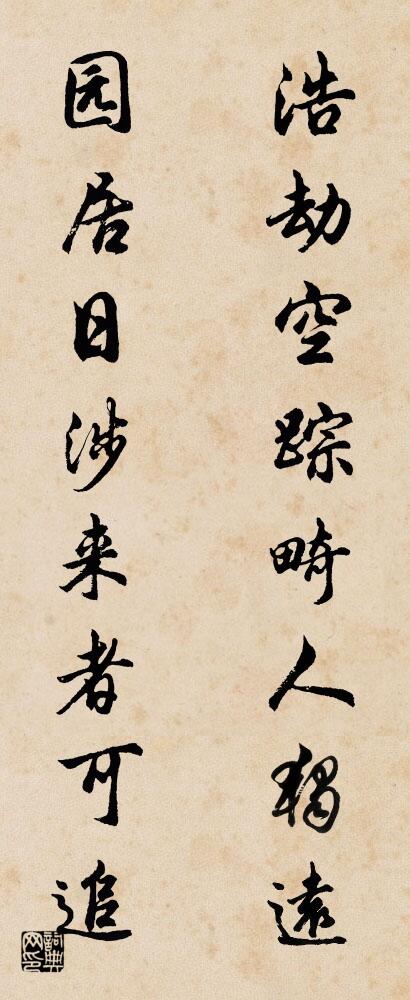 浩劫空踪畸人独遠
园居日涉来者可追
詞典网印